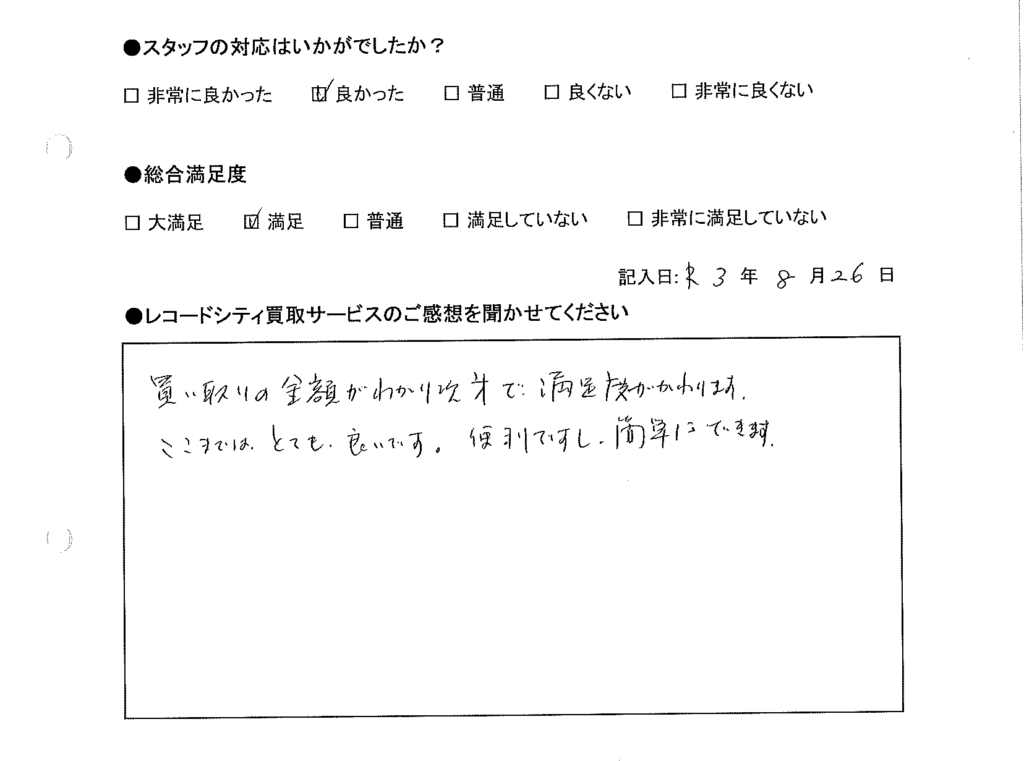 ●スタッフの対応はいかがでしたか？
□ 非常に良かった ☑ 良かった □ 普通 □ 良くない □ 非常に良くない
●総合満足度
□ 大満足 ☑ 満足 □ 普通 □ 満足していない □ 非常に満足していない
記入日: R 3 年 8 月 26 日
●レコードシティ買取サービスのご感想を聞かせてください
買い取りの金額がわかり次才で満足度がかわります。
ここまでは、とても、良いです。便利ですし、簡単にできます。